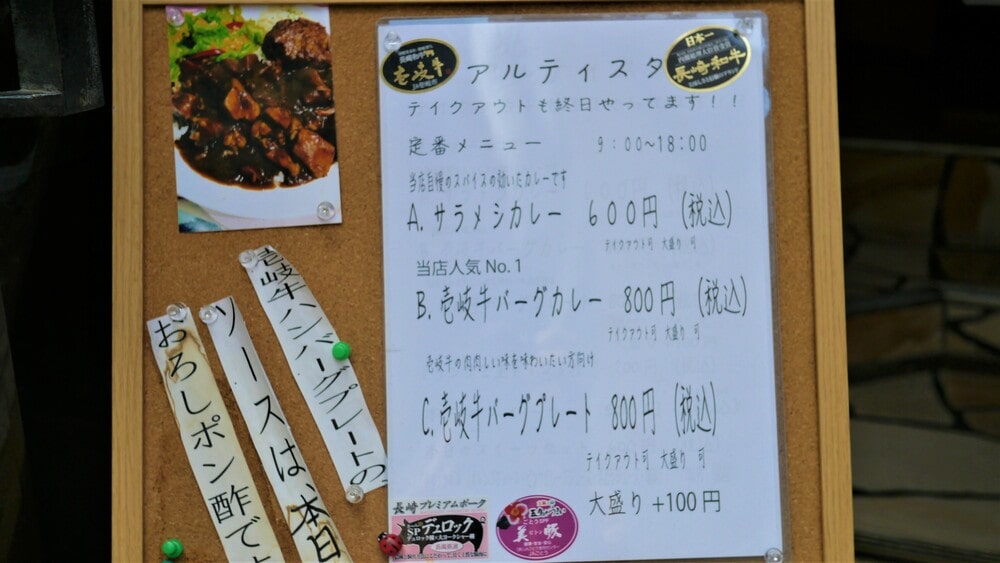 壱岐牛
アルティスタ
日本一
長崎和牛
テイクアウトも終日やってます！！
定番メニュー 9：00～18:00
当店自慢のスパイスの効いたカレーです
A. サラメシカレー 600円 (税込)
テイクアウト可 大盛り 可
当店人気 No.1
B. 壱岐牛バーグカレー 800円 (税込)
テイクアウト可 大盛り 可
壱岐牛の肉肉しい味を味わいたい方向け
C. 壱岐牛バーグプレート 800円 (税込)
テイクアウト可 大盛り 可
大盛り +100円
長崎プレミアムポーク
SPデュロック
美豚
壱岐牛ハンバーグプレートの
ソースは、本日
おろしポン酢で